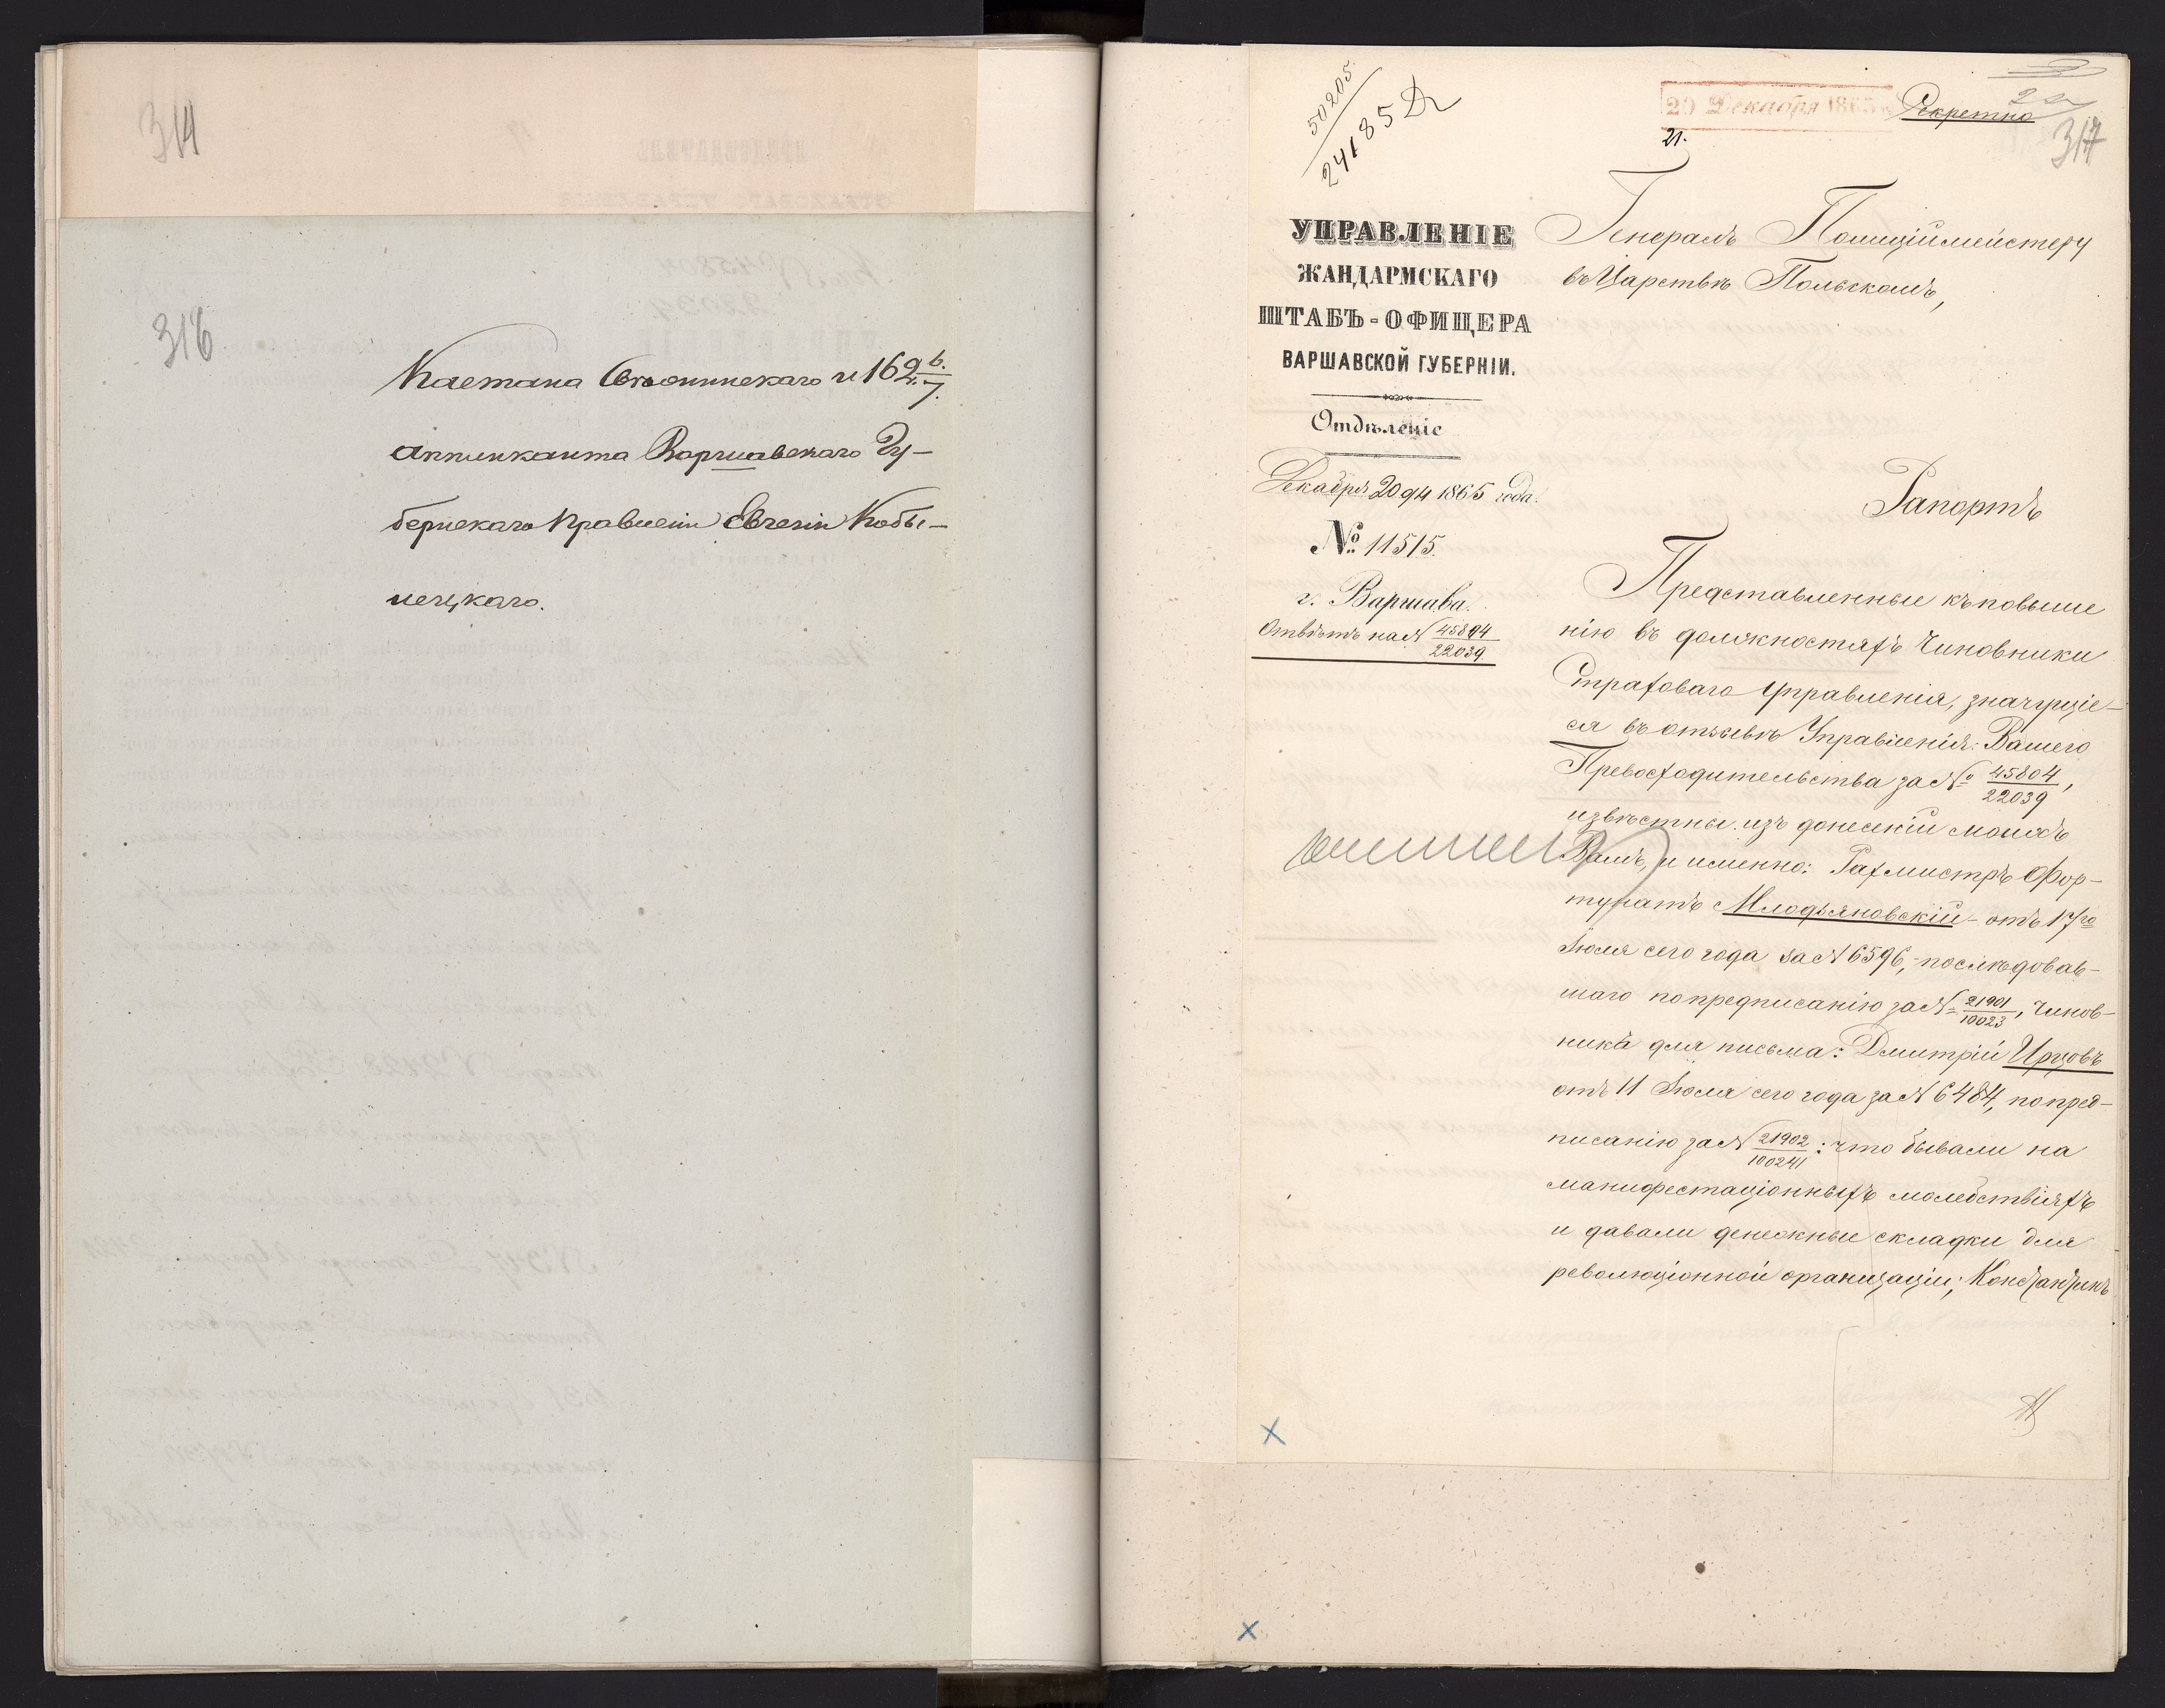 314
316
Каетана Свѣонинскаго и 162 6./7.
аппликанта Варшавскаго Гу-
бернскаго Правленія Евгенія Кобы-
лецкаго.
50205
24185
20 Декабря 1865
21.
Секретно
317
УПРАВЛЕНІЕ
ЖАНДАРМСКАГО
ШТАБЪ-ОФИЦЕРА
ВАРШАВСКОЙ ГУБЕРНІИ.
Отдѣленіе
Декабря 20 дня 1865 года.
№ 11515.
г. Варшава.
Отвѣтъ на № 45804/22039
Генералъ Полиціймейстеру
въ Царствѣ Польскомъ,
Рапортъ
Представленные къ повыше
нію въ должностяхъ Чиновники
Страховаго Управленія, значущіе-
ся въ отзывѣ Управленія Вашего
Превосходительства за № 45804/22039,
извѣстны изъ донесеній моихъ
Вамъ, и именно: Рахмистръ Фор-
тунатъ Млодзяновскій - отъ 17го
Іюля сего года за № 6596, послѣдовав-
шаго по предписанію за № 21901/10023, Чинов-
ника для письма: Дмитрій Ирцовъ
отъ 11 Іюля сего года за № 6484, по пред-
писанію за № 21902/100241: что бывали на
манифестаціонныхъ молебствіяхъ
и давали денежные складки для
революціонной организаціи; Константинъ